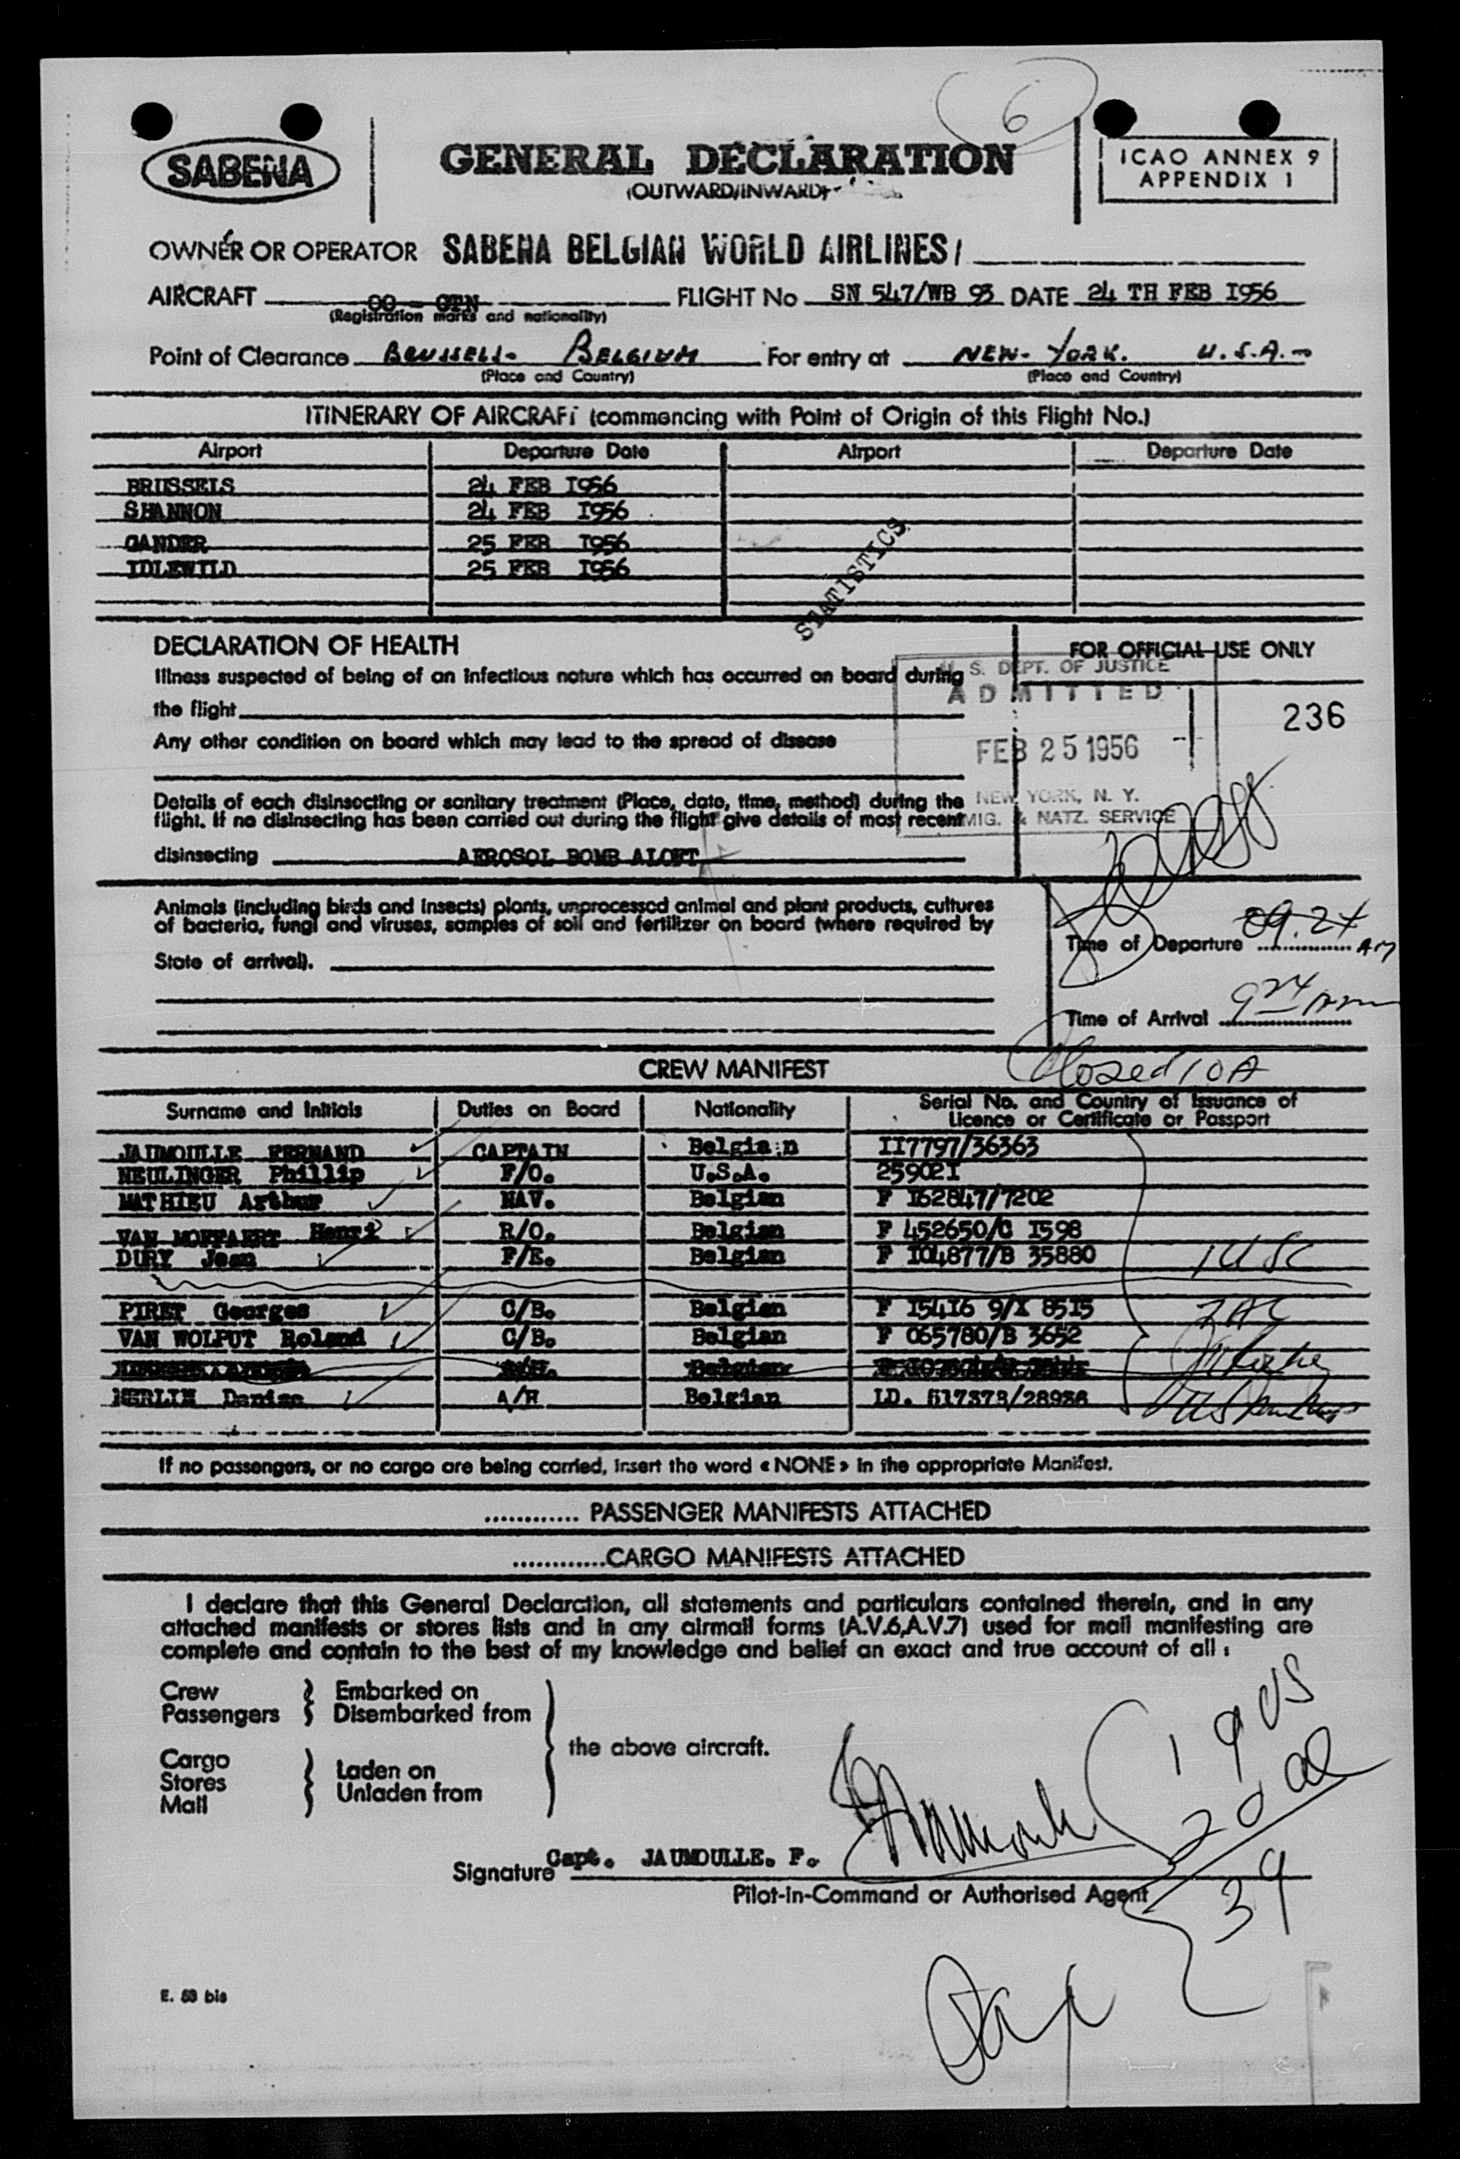 6
SABENA
GENERAL DECLARATION
(OUTWARD/INWARD)
ICAO ANNEX 9
APPENDIX 1
OWNER OR OPERATOR SABENA BELGIAN WORLD AIRLINES/
AIRCRAFT OO - FLIGHT No SN 547/WB 93 DATE 24 TH FEB I956
(Registration marks and nationality)
Point of Clearance BRUSSELS- BELGIUM For entry at NEW-YORK. U.S.A.-
(Place and Country) (Place and Country)
ITINERARY OF AIRCRAFT (commencing with Point of Origin of this Flight No.)
Airport Departure Date Airport Departure Date
BRUSSELS 24 FEB I956
SHANNON 24 FEB I956
GANDER 25 FEB I956
IDLEWILD 25 FEB I956
STATISTICS
DECLARATION OF HEALTH FOR OFFICIAL USE ONLY
Illness suspected of being of an infectious nature which has occurred on board during
the flight
236
Any other condition on board which may lead to the spread of disease
U. S. DEPT. OF JUSTICE
ADMITTED
FEB 25 1956
NEW YORK, N. Y.
IMMIG. & NATZ. SERVICE
Details of each disinsecting or sanitary treatment (Place, date, time, method) during the
flight. If no disinsecting has been carried out during the flight give details of most recent
disinsecting AEROSOL BOMB ALOFT
Animals (including birds and insects) plants, unprocessed animal and plant products, cultures
of bacteria, fungi and viruses, samples of soil and fertilizer on board (where required by
State of arrival).
Time of Departure 09.24 AM
Time of Arrival 9 24 Am
Closed 10A
CREW MANIFEST
Surname and Initials Duties on Board Nationality Serial No. and Country of Issuance of
Licence or Certificate or Passport
JAUMOULLE FERNAND CAPTAIN Belgian II7797/36363
NEULINGER Phillip F/O. U.S.A. 25902I
MATHIEU Arthur NAV. Belgian F I62847/7202
VAN MOFFAERT Henri R/O. Belgian F 452650/C I598
DURY Jean F/E. Belgian F I04877/B 35880
1 USC
PIRET Georges C/B. Belgian F I54I6 9/X 85I5
VAN WOLPUT Roland C/B. Belgian F 065780/B 3652
Belgian
MERLIN Denise A/H Belgian LD. 517378/28936
If no passengers, or no cargo are being carried, insert the word « NONE » in the appropriate Manifest.
............ PASSENGER MANIFESTS ATTACHED
............CARGO MANIFESTS ATTACHED
I declare that this General Declaration, all statements and particulars contained therein, and in any
attached manifests or stores lists and in any airmail forms (A.V.6,A.V.7) used for mail manifesting are
complete and contain to the best of my knowledge and belief an exact and true account of all :
Crew Embarked on
Passengers Disembarked from
the above aircraft.
Cargo Laden on
Stores Unladen from
Mail
19 US
20 al
39
Signature Capt. JAUMOULLE. F.
Pilot-in-Command or Authorised Agent
E. 53 bis